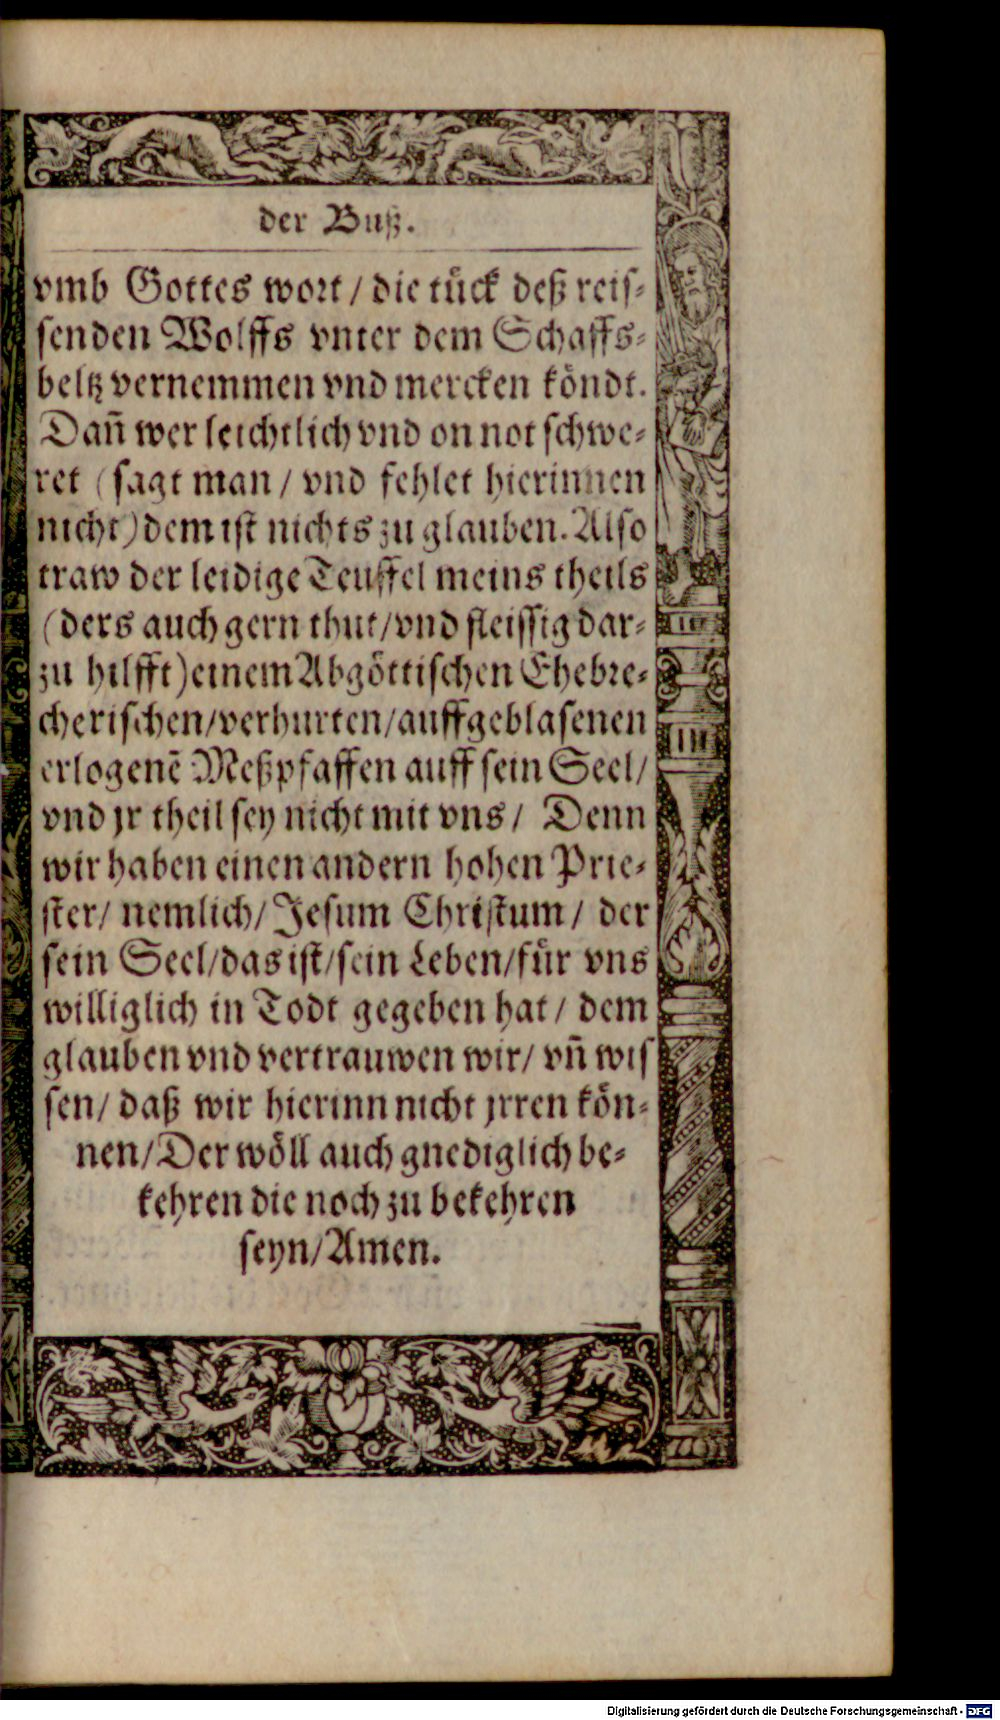 der Buß.
vmb Gottes wort / die tuͤck deß reis-
senden Wolffs vnter dem Schaffs-
beltz vernemmen vnd mercken koͤndt.
Dañ wer leichtlich vnd on not schwe-
ret (sagt man / vnd fehlet hierinnen
nicht) dem ist nichts zu glauben. Also
traw der leidige Teuffel meins theils
(ders auch gern thut / vnd fleissig dar-
zu hilfft) einem Abgoͤttischen Ehebre-
cherischen / verhurten / auffgeblasenen
erlogenẽ Meßpfaffen auff sein Seel /
vnd jr theil sey nicht mit vns / Denn
wir haben einen andern hohen Prie-
ster / nemlich / Jesum Christum / der
sein Seel / das ist / sein Leben / fuͤr vns
williglich in Todt gegeben hat / dem
glauben vnd vertrauwen wir / vñ wis
sen / daß wir hierinn nicht jrren koͤn-
nen / Der woͤll auch gnediglich be-
kehren die noch zu bekehren
seyn / Amen.
Digitalisierung gefördert durch die Deutsche Forschungsgemeinschaft - DFG